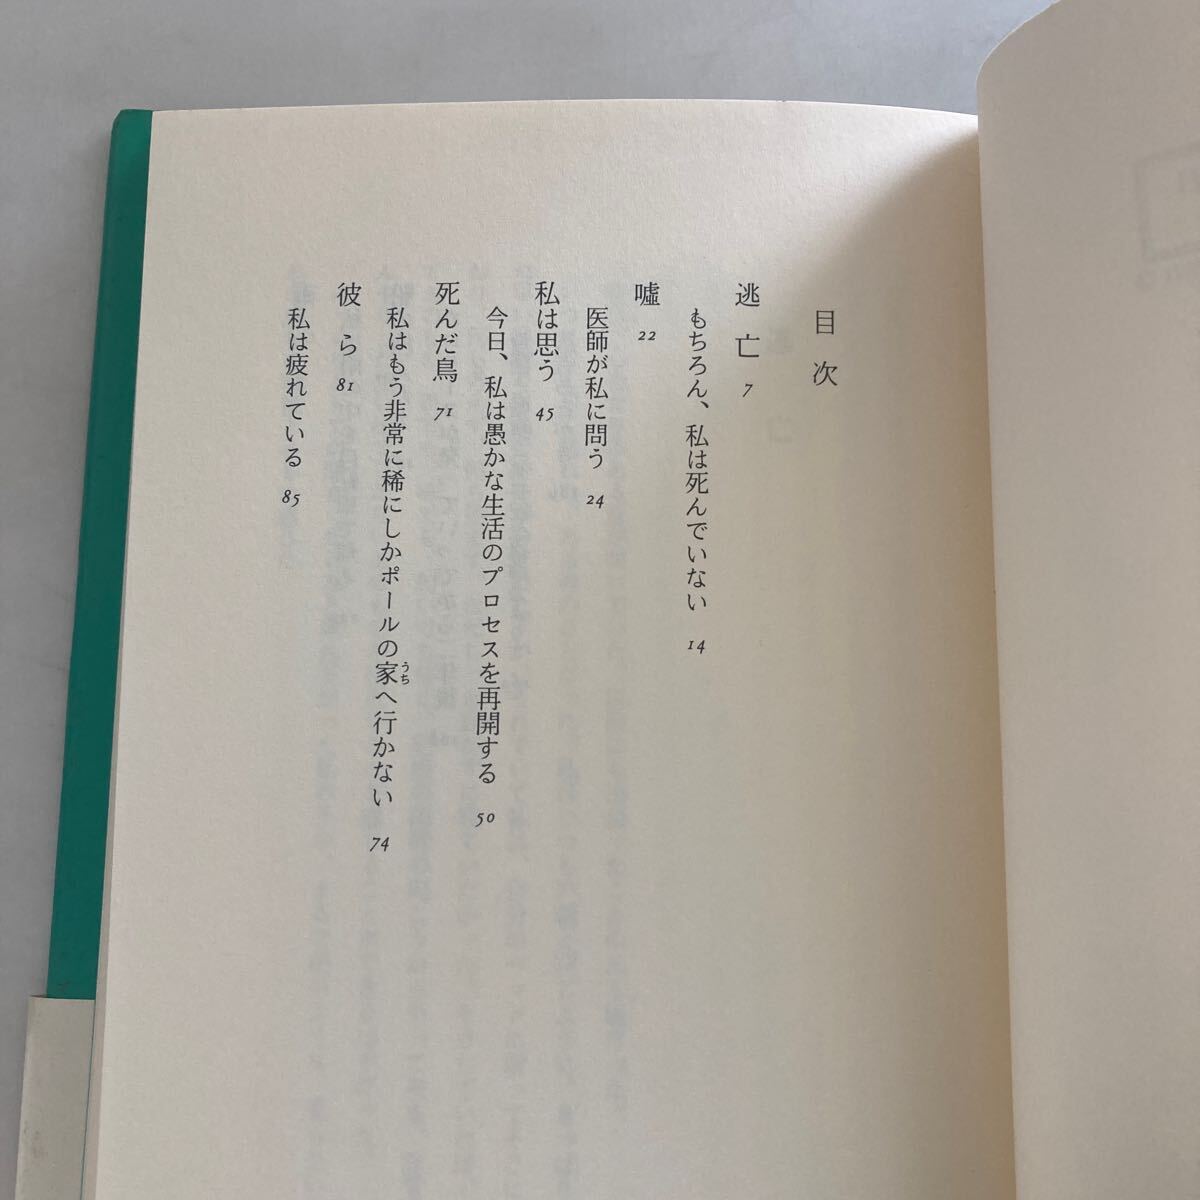 目次
逃亡 7
もちろん、私は死んでいない 14
嘘 22
医師が私に問う 24
私は思う 45
今日、私は愚かな生活のプロセスを再開する 50
死んだ鳥 71
私はもう非常に稀にしかポールの家へ行かない 74
うち
彼ら 81
私は疲れている 85